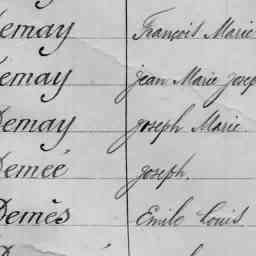 Demay François Marie
Demay Jean Marie Josep
Demay Joseph Marie
Demeé Joseph.
Demês Emile Louis